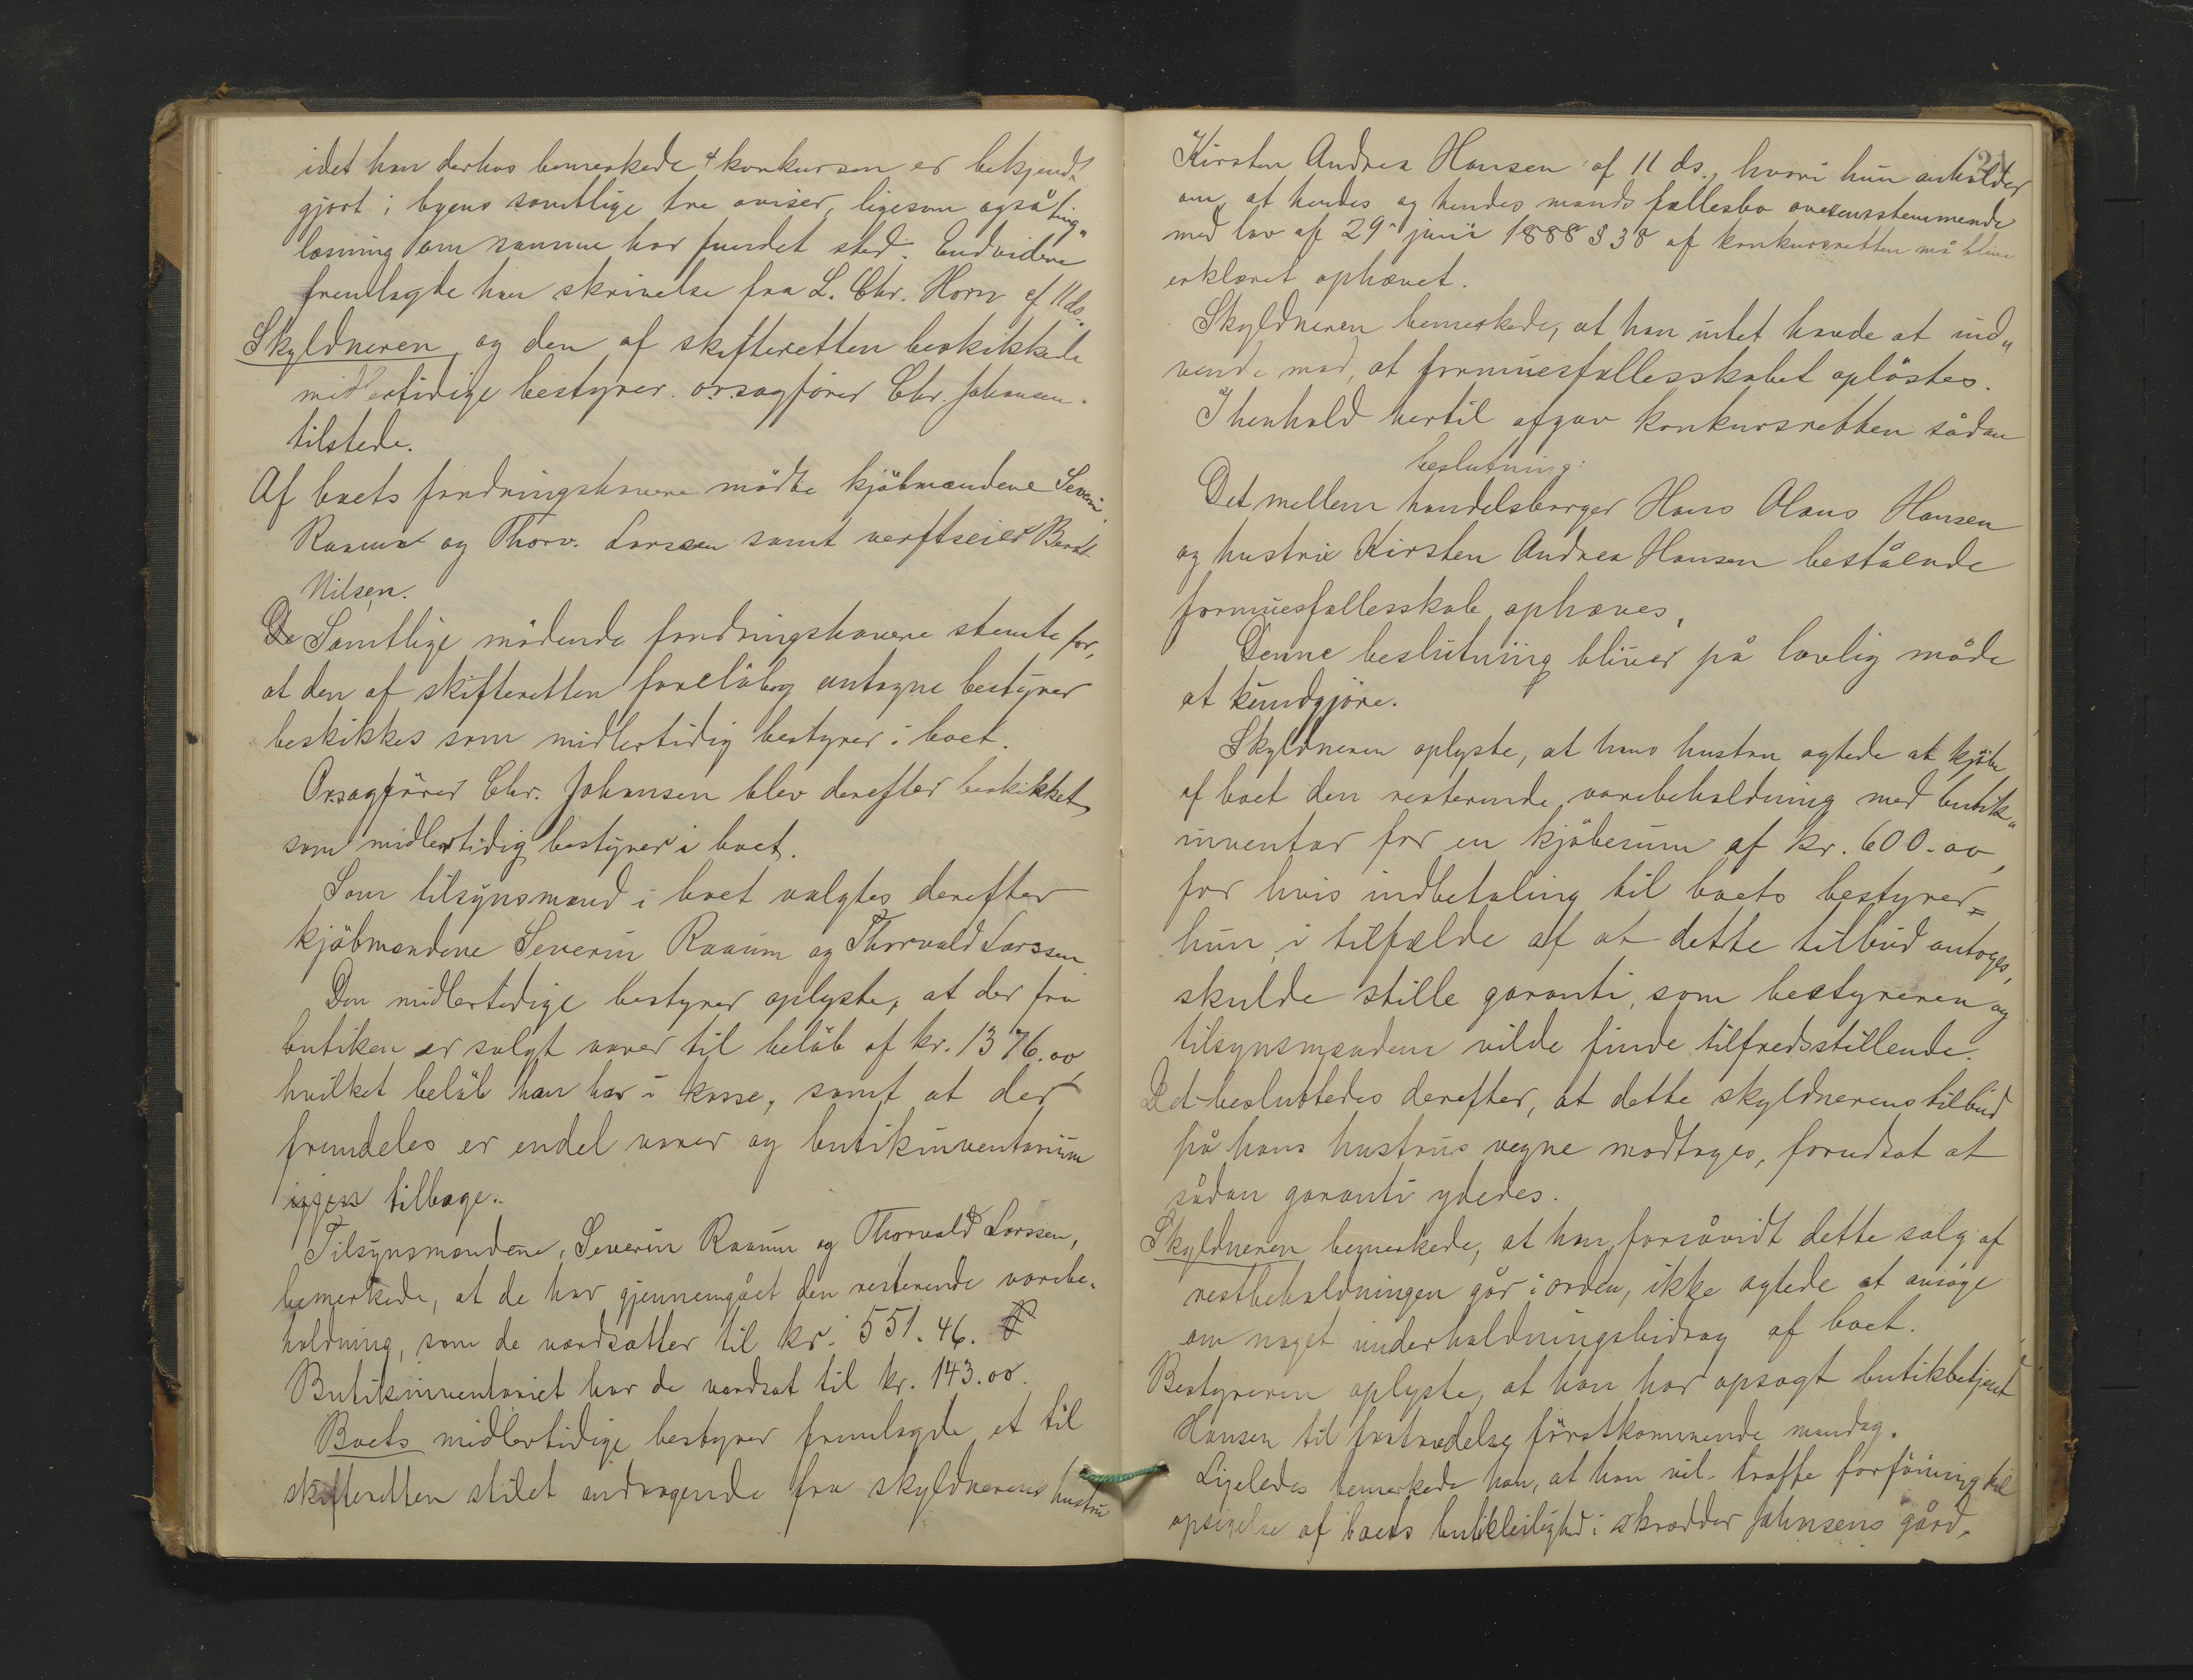 idet han derhos bemerkede at konkursen er bekjendt
gjort i byens samtlige tre aviser, ligesom også ting„
læsning om samme har fundet sted. Endvidere
fremlagde han skrivelse fra L. Chr. Horn af 11 ds.
Skyldneren og den af skifteretten beskikkede
midlertidige bestyrer o.r.sagfører Chr. Johansen
tilstede.
Af boets fordringshavere mödte kjöbmændene Severin
Raaum og Thorv. Larssen samt verftseier Berat
Nilsen.
De Samtlige mödende fordringshavere stemte for,
at den af skifteretten foreløbig antagne bestyrer
beskikkes som midlertidig bestyrer i boet.
O.r.sagförer Chr. Johansen blev derefter beskikket
som midlertidig bestyrer i boet.
Som tilsynsmænd i boet valgtes derefter
kjöbmændene Severin Raaum og Thorvald Larssen
Den midlertidige bestyrer oplyste, at der fra
butiken er solgt varer til beløb af kr. 1376.00
hvilket belöb han har i kasse, samt at der
fremdeles er endel varer og butikinventarium
igjen tilbage.
Tilsynsmændene, Severin Raaum og Thorvald Larssen,
bemerkede, at de har gjennemgået den resterende varebe„
holdning, som de værdsætter til kr. 551.46.
Butikinventariet har de værdsat til kr. 143.00.
Boets midlertidige bestyrer fremlagde et til
skifteretten stilet andragende fra skyldnerens hustru
Kirsten Andrea Hansen af 11 ds., hvori hun anholder
om, at hendes og hendes mands fællesbo overensstemmende
med lov af 29 juni 1888 § 38 af konkursretten må blive
erklæret ophævet.
Skyldneren bemerkede, at han intet havde at ind„
vende mod, at formuesfællesskabet oplöstes.
I henhold hertil afgav konkursretten sådan
beslutning:
Det mellem handelsborger Hans Olaus Hansen
og hustru Kirsten Andrea Hansen bestående
formuesfællesskab ophæves.
Denne beslutning bliver på lovlig måde
at kundgjöre.
Skyldneren oplyste, at hans hustru agtede at kjöbe
af boet den resterende varebeholdning med butik„
inventar for en kjöbesum af kr. 600.00,
for hvis indbetaling til boets bestyrer
hun, i tilfælde af at dette tilbud antoges,
skulde stille garanti, som bestyreren og
tilsynsmændene vilde finde tilfredsstillende.
Det besluttedes derefter, at dette skyldnerens tilbud
på hans hustrus vegne modtages, forudsat at
sådan garanti ydedes.
Skyldneren bemerkede, at han, forsåvidt dette salg af
restbeholdningen går i orden, ikke agtede at ansöge
om noget underholdningsbidrag af boet.
Bestyreren oplyste, at han har opsagt butikbetjent
Hansen til fratrædelse förstkommende mandag.
Ligeledes bemerkede han, at han vil træffe forföining til
opsigelse af boets butikleilighed i skrædder Johnsens gård.